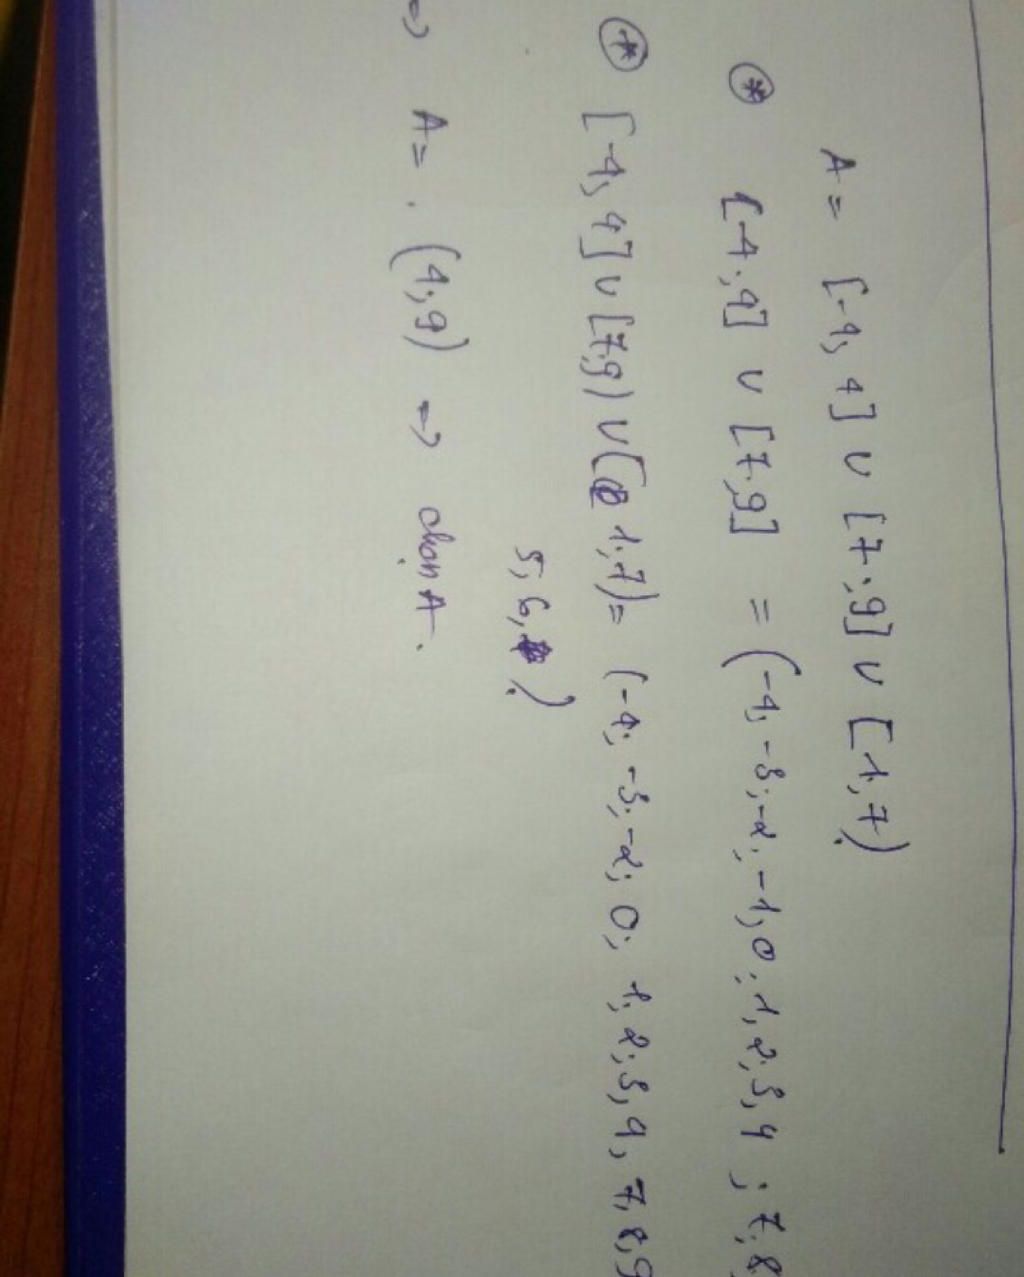 A = [-4; 4] ∪ [7; 9] ∪ [1; 7)
* [-4; 4] ∪ [7; 9] = (-4; -3; -2; -1; 0; 1; 2; 3; 4; 7; 8
* [-4; 4] ∪ [7; 9) ∪ [1; 7) = (-4; -3; -2; 0; 1; 2; 3; 4, 7, 8, 9
5; 6, )
=> A = . (4; 9) => chọn A.